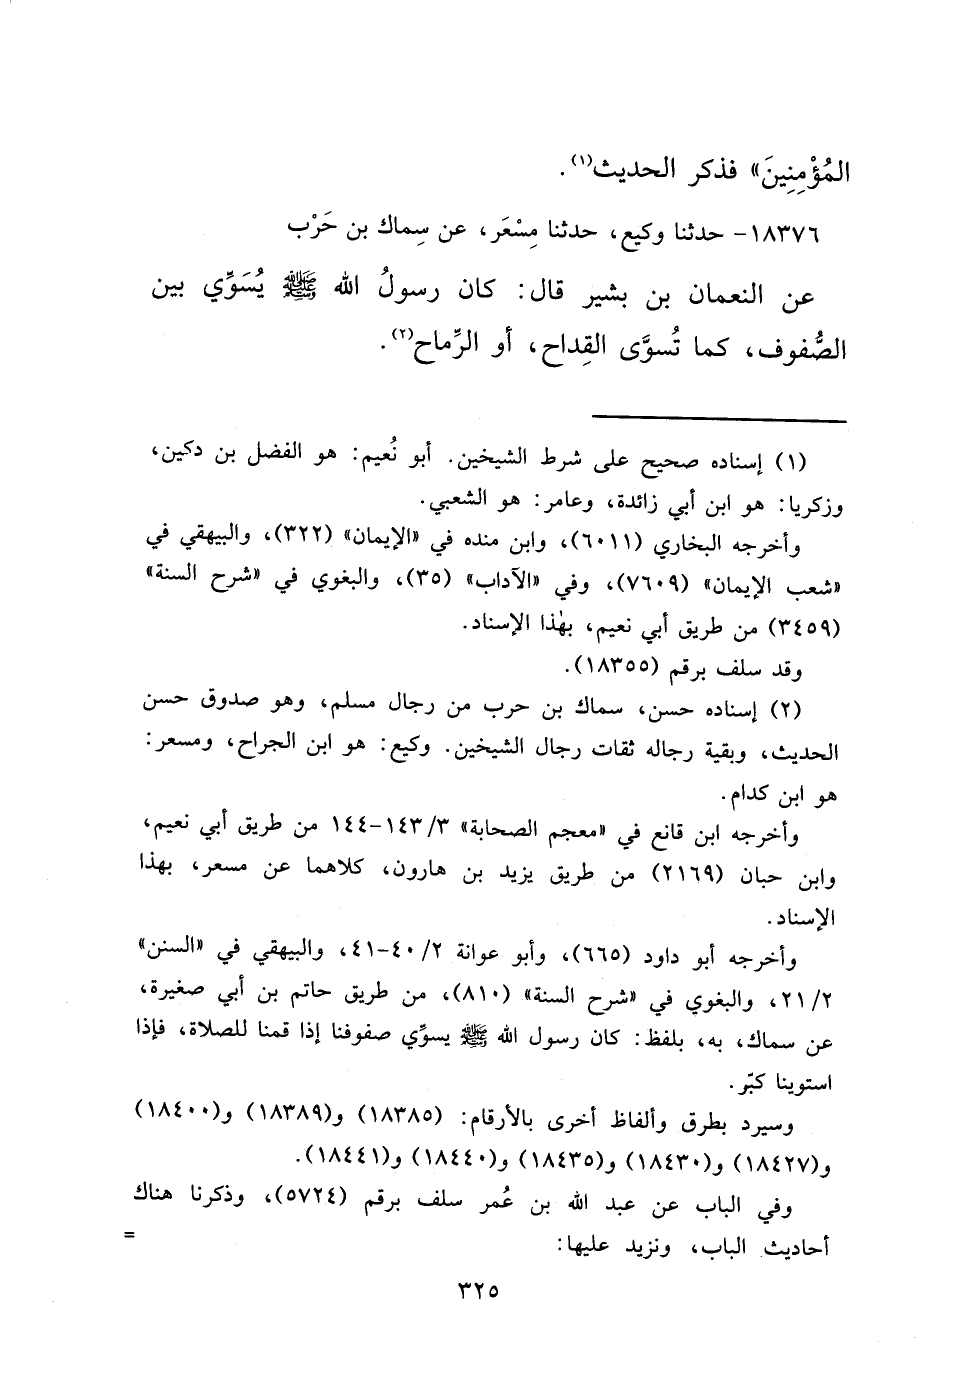 المُؤْمِنِينَ» فذكر الحديث(١).
١٨٣٧٦- حدثنا وكيع، حدثنا مِسْعَر، عن سِماك بن حَرْب
عن النعمان بن بشير قال: كان رسولُ الله ﷺ يُسَوِّي بين
الصُّفوف، كما تُسوَّى القِداح، أو الرِّماح(٢).
(١) إسناده صحيح على شرط الشيخين. أبو نُعيم: هو الفضل بن دكين،
وزكريا: هو ابن أبي زائدة، وعامر: هو الشعبي.
وأخرجه البخاري (٦٠١١)، وابن منده في «الإيمان» (٣٢٢)، والبيهقي في
«شعب الإيمان» (٧٦٠٩)، وفي «الآداب» (٣٥)، والبغوي في «شرح السنة»
(٣٤٥٩) من طريق أبي نعيم، بهٰذا الإسناد.
وقد سلف برقم (١٨٣٥٥).
(٢) إسناده حسن، سماك بن حرب من رجال مسلم، وهو صدوق حسن
الحديث، وبقية رجاله ثقات رجال الشيخين. وكيع: هو ابن الجراح، ومسعر:
هو ابن كدام.
وأخرجه ابن قانع في «معجم الصحابة» ١٤٣/٣-١٤٤ من طريق أبي نعيم،
وابن حبان (٢١٦٩) من طريق يزيد بن هارون، كلاهما عن مسعر، بهذا
الإسناد.
وأخرجه أبو داود (٦٦٥)، وأبو عوانة ٤٠/٢-٤١، والبيهقي في «السنن»
٢١/٢، والبغوي في «شرح السنة» (٨١٠)، من طريق حاتم بن أبي صغيرة،
عن سماك، به، بلفظ: كان رسول الله ﷺ يسوِّي صفوفنا إذا قمنا للصلاة، فإذا
استوينا كبّر.
وسيرد بطرق وألفاظ أخرى بالأرقام: (١٨٣٨٥) و(١٨٣٨٩) و(١٨٤٠٠)
و(١٨٤٢٧) و(١٨٤٣٠) و(١٨٤٣٥) و(١٨٤٤٠) و(١٨٤٤١).
وفي الباب عن عبد الله بن عُمر سلف برقم (٥٧٢٤)، وذكرنا هناك
أحاديث الباب، ونزيد عليها: =
٣٢٥